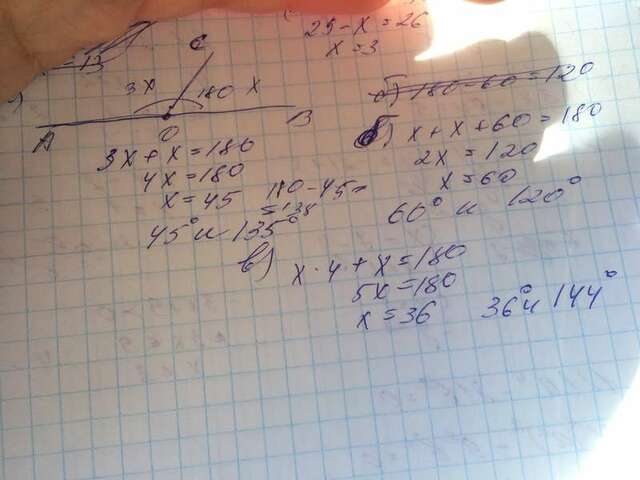 C
3x
A
O
B
3x + x = 180
4x = 180
x = 45
180 - 45 =
= 135°
45° и 135°
29 - x = 26
x = 3
180 - 60 = 120
б) x + x + 60 = 180
2x = 120
x = 60
60° и 120°
в) x · 4 + x = 180
5x = 180
x = 36
36° и 144°